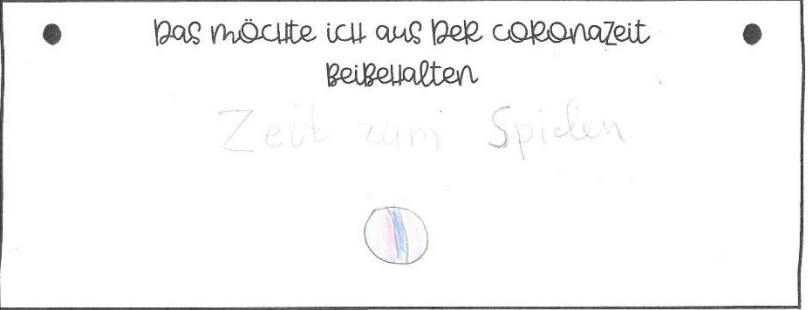 Das möchte ich aus der Coronazeit
beibehalten
Zeit zum Spielen